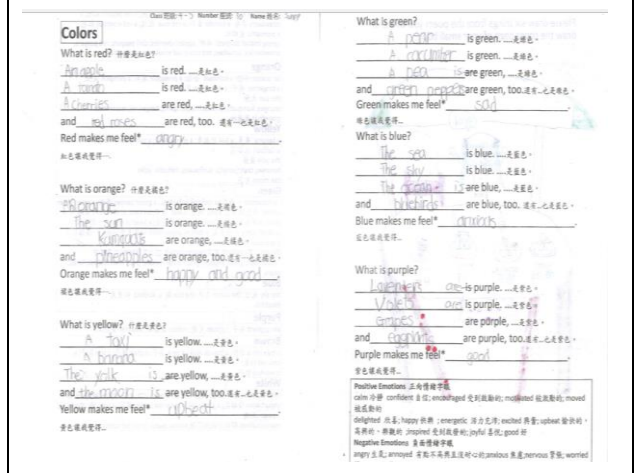 Class 班級: 4-5 Number 座號: 10 Name 姓名:
Colors
What is red? 什麼是紅色?
An apple is red. ....是紅色。
A is red. ....是紅色。
A cherries are red, ....是紅色。
and red roses are red, too. 還有…也是紅色。
Red makes me feel* angry.
紅色讓我覺得…
What is orange? 什麼是橘色?
orange is orange. ....是橘色。
The sun is orange. ....是橘色。
Kumquats are orange, ....是橘色。
and pineapples are orange, too. 還有…也是橘色。
Orange makes me feel* happy and good.
橘色讓我覺得…
What is yellow? 什麼是黃色?
A taxi is yellow. ....是黃色。
A banana is yellow. ....是黃色。
The yolk is are yellow, ....是黃色。
and the moon is are yellow, too. 還有…也是黃色。
Yellow makes me feel* upbeat.
黃色讓我覺得…
What is green?
A pear is green. ....是綠色。
A is green. ....是綠色。
A pea is are green, ....是綠色。
and green are green, too. 還有…也是綠色。
Green makes me feel* sad.
綠色讓我覺得…
What is blue?
The sea is blue. ....是藍色。
The sky is blue. ....是藍色。
The ocean is are blue, ....是藍色。
and bluebirds are blue, too. 還有…也是藍色。
Blue makes me feel* anxious.
藍色讓我覺得…
What is purple?
are is purple. ....是紫色。
Violets are is purple. ....是紫色。
Grapes are purple, ....是紫色。
and are purple, too. 還有…也是紫色。
Purple makes me feel* good.
紫色讓我覺得…
Positive Emotions 正向情緒字眼
calm 冷靜 confident 自信; encouraged 受到鼓勵的; motivated 被激勵的; moved
被感動的
delighted 欣喜; happy 快樂 ; energetic 活力充沛; excited 興奮; upbeat 愉快的、
高興的、樂觀的 ;inspired 受到啟發的; joyful 喜悅; good 好
Negative Emotions 負面情緒字眼
angry 生氣; annoyed 有點不高興且沒耐心的;anxious 焦慮;nervous 緊張; worried